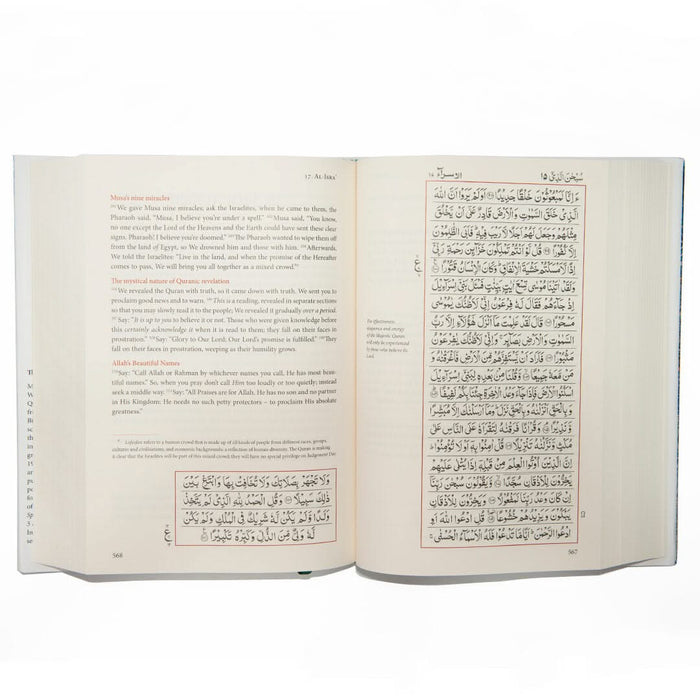 سُبْحٰنَ الَّذِیْ ١٥
الإسراء ١٧
ءَ اِنَّا لَمَبْعُوْثُوْنَ خَلْقًا جَدِيْدًا اَوَلَمْ يَرَوْا اَنَّ اللّٰهَ
الَّذِيْ خَلَقَ السَّمٰوٰتِ وَالْاَرْضَ قَادِرٌ عَلٰٓى اَنْ يَّخْلُقَ
مِثْلَهُمْ وَجَعَلَ لَهُمْ اَجَلًا لَّا رَيْبَ فِيْهِ فَاَبَى الظّٰلِمُوْنَ
اِلَّا كُفُوْرًا قُلْ لَّوْ اَنْتُمْ تَمْلِكُوْنَ خَزَآئِنَ رَحْمَةِ رَبِّيْٓ
اِذًا لَّاَمْسَكْتُمْ خَشْيَةَ الْاِنْفَاقِ وَكَانَ الْاِنْسَانُ قَتُوْرًا
وَلَقَدْ اٰتَيْنَا مُوْسٰى تِسْعَ اٰيٰتٍۭ بَيِّنٰتٍ فَسْـَٔلْ بَنِيْٓ اِسْرَآءِيْلَ
اِذْ جَآءَهُمْ فَقَالَ لَهٗ فِرْعَوْنُ اِنِّيْ لَاَظُنُّكَ يٰمُوْسٰى
مَسْحُوْرًا قَالَ لَقَدْ عَلِمْتَ مَآ اَنْزَلَ هٰٓؤُلَآءِ اِلَّا رَبُّ
السَّمٰوٰتِ وَالْاَرْضِ بَصَآئِرَ وَاِنِّيْ لَاَظُنُّكَ يٰفِرْعَوْنُ
مَثْبُوْرًا فَاَرَادَ اَنْ يَّسْتَفِزَّهُمْ مِّنَ الْاَرْضِ فَاَغْرَقْنٰهُ وَ
مَنْ مَّعَهٗ جَمِيْعًا وَّقُلْنَا مِنْۢ بَعْدِهٖ لِبَنِيْٓ اِسْرَآءِيْلَ
اسْكُنُوا الْاَرْضَ فَاِذَا جَآءَ وَعْدُ الْاٰخِرَةِ جِئْنَا بِكُمْ لَفِيْفًا
وَبِالْحَقِّ اَنْزَلْنٰهُ وَبِالْحَقِّ نَزَلَ وَمَآ اَرْسَلْنٰكَ اِلَّا مُبَشِّرًا
وَّنَذِيْرًا وَقُرْاٰنًا فَرَقْنٰهُ لِتَقْرَاَهٗ عَلَى النَّاسِ عَلٰى
مُكْثٍ وَّنَزَّلْنٰهُ تَنْزِيْلًا قُلْ اٰمِنُوْا بِهٖٓ اَوْ لَا تُؤْمِنُوْا
اِنَّ الَّذِيْنَ اُوْتُوا الْعِلْمَ مِنْ قَبْلِهٖٓ اِذَا يُتْلٰى عَلَيْهِمْ
يَخِرُّوْنَ لِلْاَذْقَانِ سُجَّدًا وَّيَقُوْلُوْنَ سُبْحٰنَ رَبِّنَآ
اِنْ كَانَ وَعْدُ رَبِّنَا لَمَفْعُوْلًا وَيَخِرُّوْنَ لِلْاَذْقَانِ
يَبْكُوْنَ وَيَزِيْدُهُمْ خُشُوْعًا قُلِ ادْعُوا اللّٰهَ اَوِ
ادْعُوا الرَّحْمٰنَ اَيًّا مَّا تَدْعُوْا فَلَهُ الْاَسْمَآءُ الْحُسْنٰى
The effectiveness,
eloquence and energy
of the Majestic Quran
will only be experienced
by those who believe the
Lord.
567
17 · Al-Isra'
Musa's nine miracles
We gave Musa nine miracles, ask the Israelites, when he came to them, the
Pharaoh said, "Musa, I believe you're under a spell." Musa said, "You know,
no one except the Lord of the Heavens and the Earth could have sent these clear
signs, Pharaoh! I believe you're doomed." The Pharaoh wanted to wipe them off
from the land of Egypt, so We drowned him and those with him. Afterwards,
We told the Israelites: "Live in the land, and when the promise of the Hereafter
comes to pass, We will bring you all together as a mixed crowd."
The mystical nature of Quranic revelation
We revealed the Quran with truth, so it came down with truth. We sent you to
proclaim good news and to warn. This is a reading, revealed in separate sections
so that you may slowly read it to the people; We revealed it gradually over a period.
Say: "It is up to you to believe it or not. Those who were given knowledge before
this certainly acknowledge it when it is read to them; they fall on their faces in
prostration. Say: "Glory to Our Lord; Our Lord's promise is fulfilled." They
fall on their faces in prostration, weeping as their humility grows.
Allah's Beautiful Names
Say: "Call Allah or Rahman by whichever names you call, He has most
beautiful names." So, when you pray don't call Him too loudly or too quietly; instead
seek a middle way. Say: "All Praises are for Allah. He has no son and no partner
in His Kingdom; He needs no such petty protectors – to proclaim His absolute
greatness."
Lafeefan refers to a human crowd that is made up of all kinds of people from different races, groups,
cultures and civilisations, and economic backgrounds: a reflection of human diversity. The Quran is making
it clear that the Israelites will be part of this mixed crowd; they will have no special privilege on Judgement Day.
وَلَا تَجْهَرْ بِصَلَاتِكَ وَلَا تُخَافِتْ بِهَا وَابْتَغِ بَيْنَ
ذٰلِكَ سَبِيْلًا وَقُلِ الْحَمْدُ لِلّٰهِ الَّذِيْ لَمْ يَتَّخِذْ
وَلَدًا وَّلَمْ يَكُنْ لَّهٗ شَرِيْكٌ فِي الْمُلْكِ وَلَمْ يَكُنْ
لَّهٗ وَلِيٌّ مِّنَ الذُّلِّ وَكَبِّرْهُ تَكْبِيْرًا
568